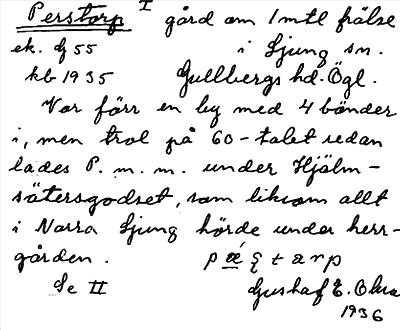 Perstorp I gård om 1 mtl frälse
ek. bl 55 i Ljung sn.
kb 1935 Gullbergs hd. Ögl.
Var förr en by med 4 bönder
i, men trol på 60-talet redan
lades P. m. m. under Hjälm-
sätersgodset, som liksom allt
i Norra Ljung hörde under herr-
gården.
Se II Gushaf E. Ohra
1936